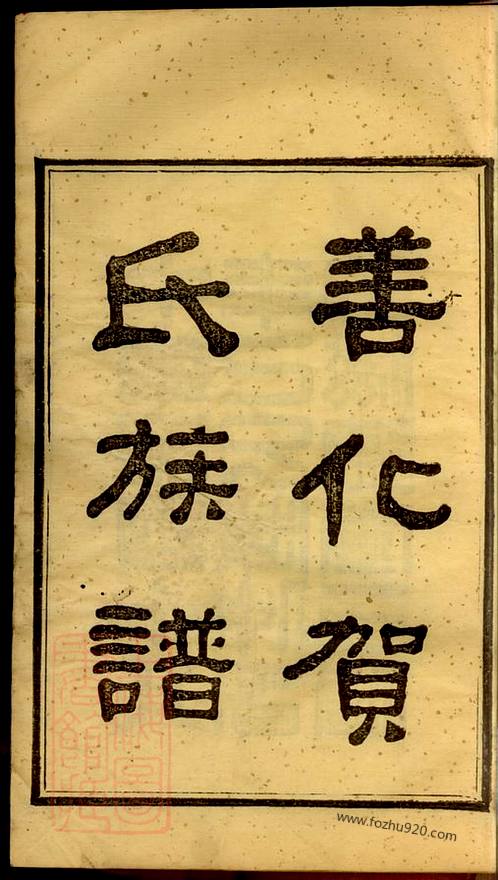 善化賀
氏族譜
www.fozhu920.com